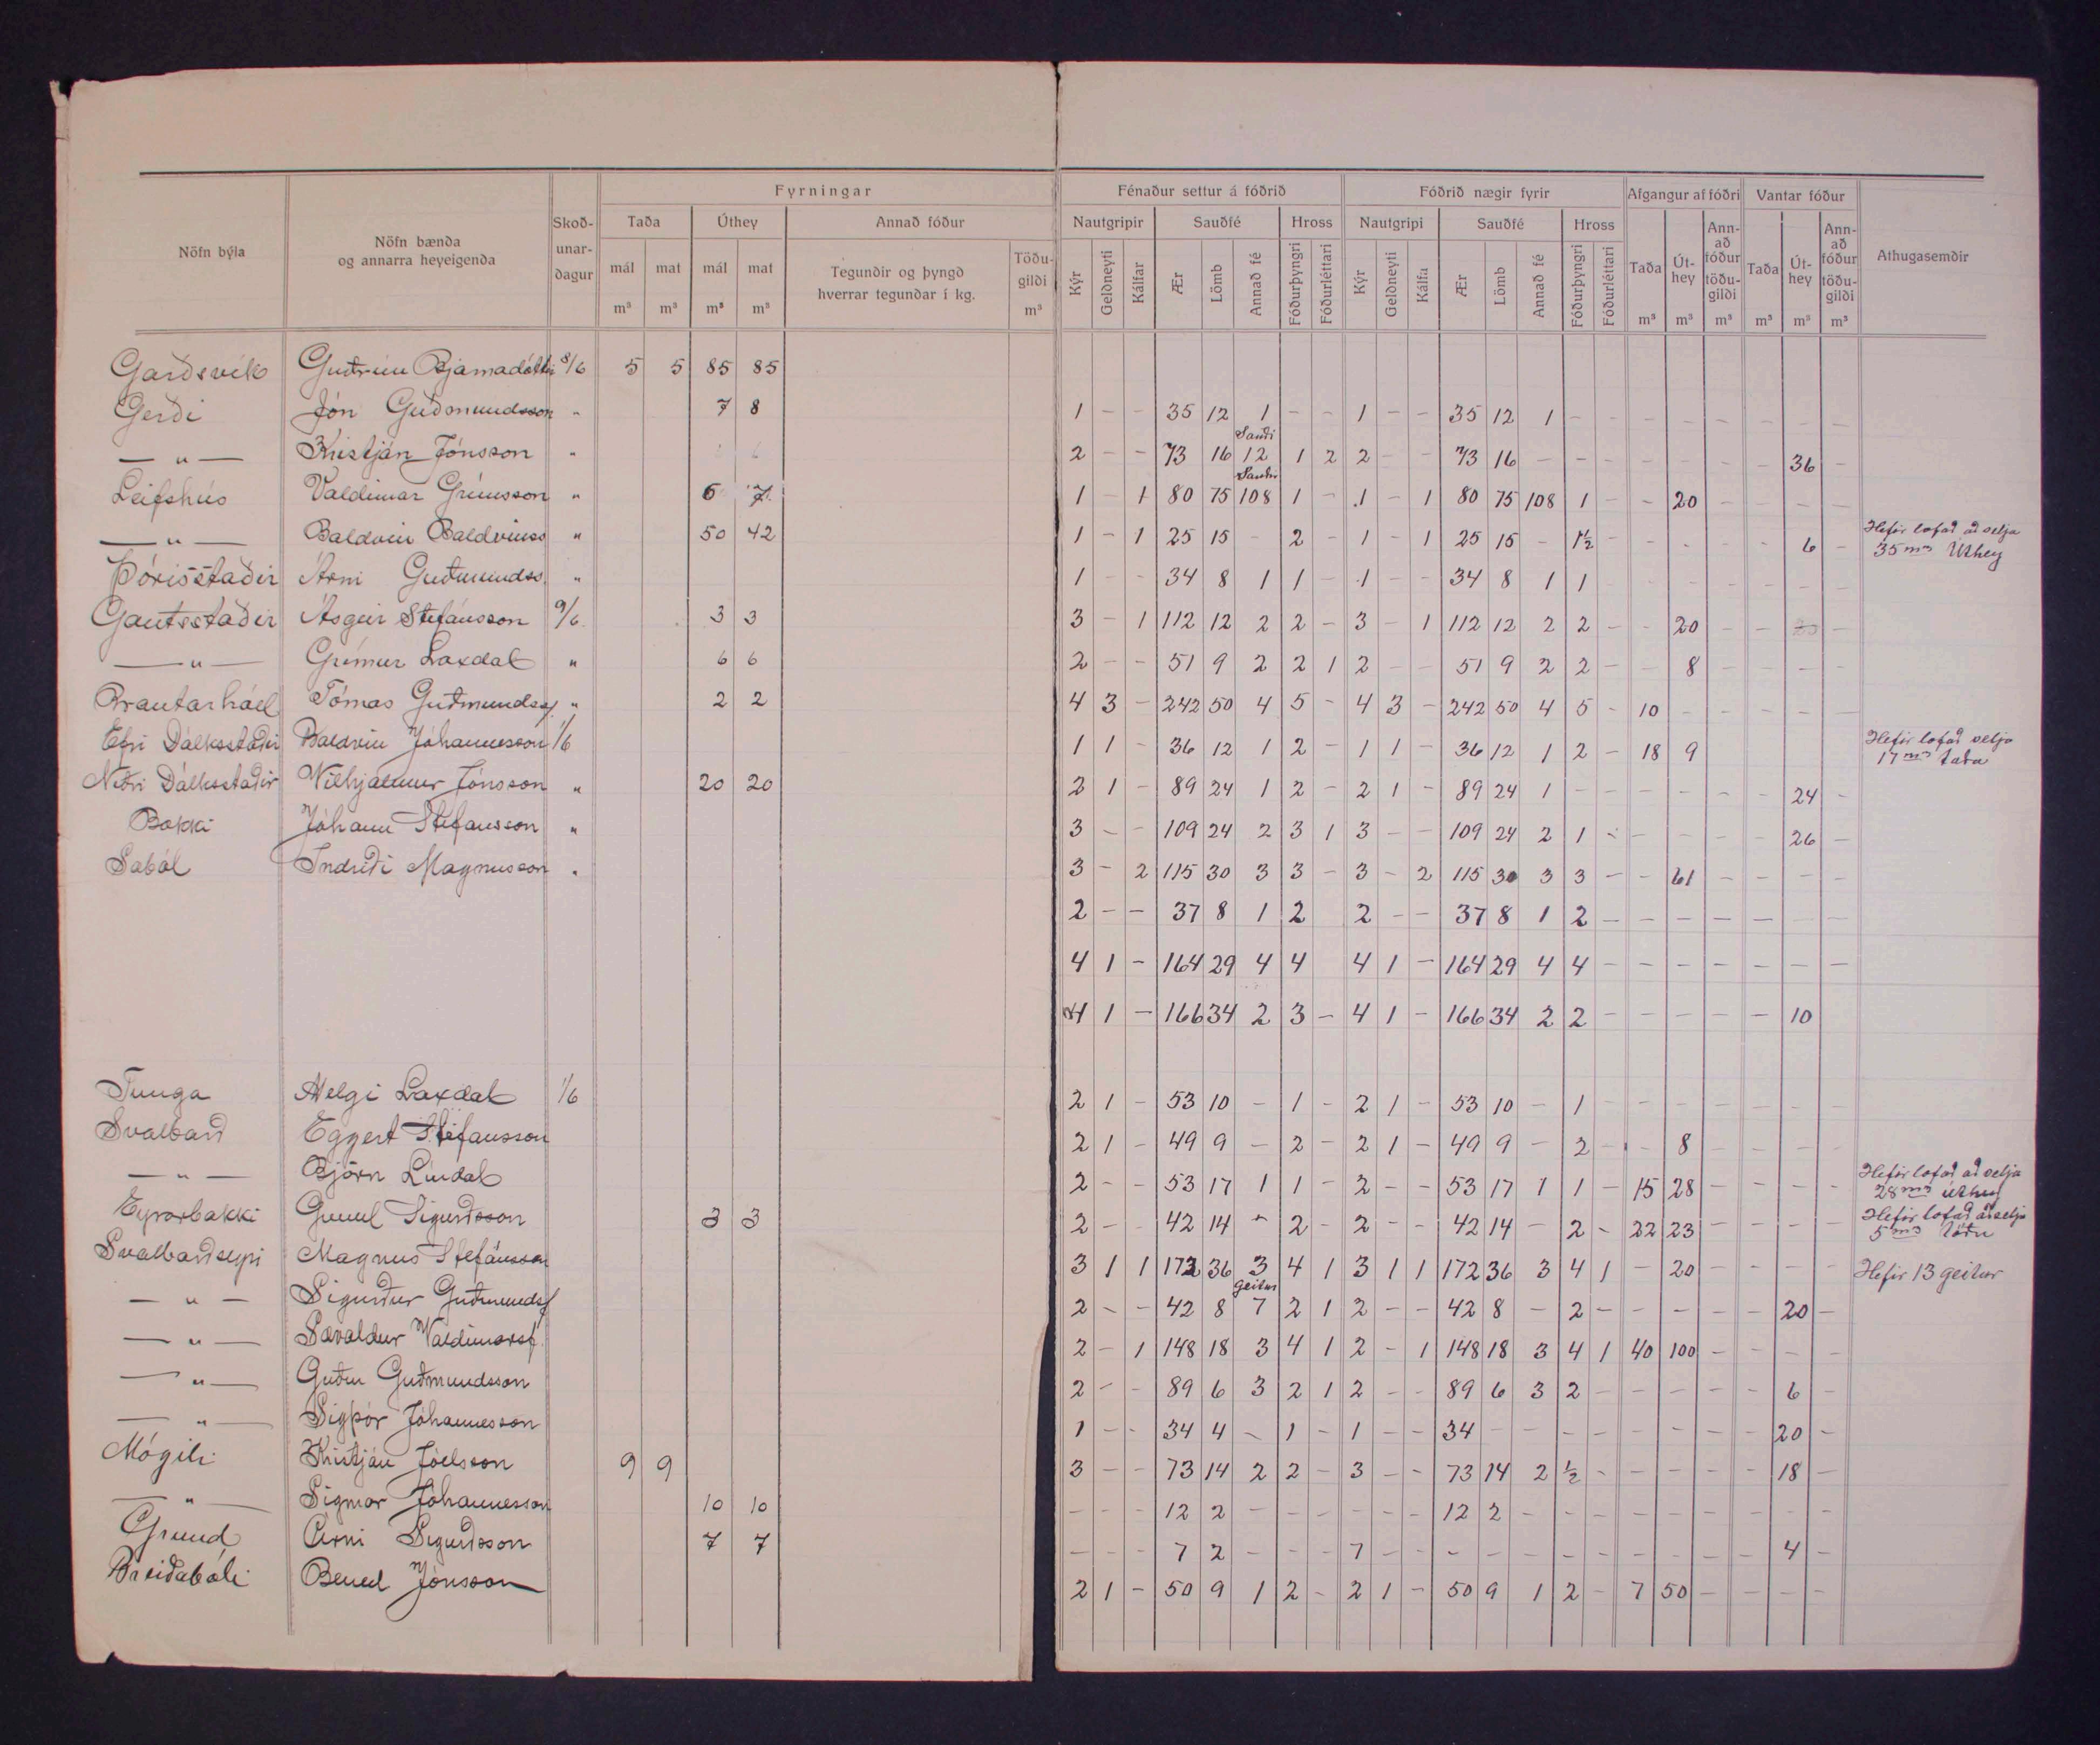 Nöfn býla | Nöfn bænda og annarra heyeigenda | Skoð-unar-dagur | Fyrningar | Taða | Úthey | Annað fóður | mál m³ | mat m³ | mál m³ | mat m³ | Tegundir og þyngd hverrar tegundar í kg. | Töðu-gildi m³
Fénaður settur á fóðrið | Fóðrið nægir fyrir | Afgangur af fóðri | Vantar fóður | Athugasemdir
Nautgripir | Sauðfé | Hross | Nautgripi | Sauðfé | Hross
Kýr | Geldneyti | Kálfar | Ær | Lömb | Annað fé | Fóðurþyngri | Fóðurléttari | Kýr | Geldneyti | Kálfa | Ær | Lömb | Annað fé | Fóðurþyngri | Fóðurléttari | Taða m³ | Út-hey m³ | Ann-að fóður töðu-gildi m³ | Taða m³ | Út-hey m³ | Ann-að fóður töðu-gildi m³
Garðsvík Guðrún Bjarnadóttir 8/6 5 5 85 85
Gerði Jón Guðmundsson " 7 8
— " — Kristján Jónsson "
Leifshús Valdimar Grímsson " 6 7
— " — Baldvin Baldvinss " 50 42
Þórisstaðir Árni Guðmundss. "
Gautsstaðir Ásgeir Stefánsson 9/6 3 3
— " — Grímur Laxdal " 6 6
Brautarhóll Tómas Guðmundss. " 2 2
Efri Dálksstaðir Baldvin Jóhannesson 1/6
Neðri Dálksstaðir Vilhjálmur Jónsson " 20 20
Bakki Jóhann Stefansson "
Saból Indriði Magnusson "
Tunga Helgi Laxdal 1/6
Svalbarð Eggert Stefansson
— " — Björn Líndal
Eyrarbakki Gunnl Sigurðsson 3 3
Svalbarðseyri Magnus Stefánsson
— " — Sigurður Guðmundss
— " — Sævaldur Valdimarss
— " — Guðm Guðmundsson
— " — Sigþór Jóhannesson
Mógili Kristján Jóelsson 9 9
— " — Sigmar Jóhannesson 10 10
Grund Árni Sigurdsson 7 7
Breiðaból Bened Jónsson
1 - - 35 12 1 - - 1 - - 35 12 1 - - - - - - - -
Sauði
2 - - 73 16 12 1 2 2 - - 73 16 - - - - - - - 36 -
Sauðir
1 - 1 80 75 108 1 - 1 - 1 80 75 108 1 - - 20 - - - -
1 - 1 25 15 - 2 - 1 - 1 25 15 - 1½ - - - - - 6 - Hefir lofað að selja
35 m³ Úthey
1 - - 34 8 1 1 - 1 - - 34 8 1 1 - - - - - -
3 - 1 112 12 2 2 - 3 - 1 112 12 2 2 - - 20 - - 20 -
2 - - 51 9 2 2 1 2 - - 51 9 2 2 - - 8 - - - -
4 3 - 242 50 4 5 - 4 3 - 242 50 4 5 - 10 - - - - -
1 1 - 36 12 1 2 - 1 1 - 36 12 1 2 - 18 9 Hefir lofað selja
17 m³ taða
2 1 - 89 24 1 2 - 2 1 - 89 24 1 - - - - - - 24 -
3 - - 109 24 2 3 1 3 - - 109 24 2 1 - - - - - 26 -
3 - 2 115 30 3 3 - 3 - 2 115 30 3 3 - - 61 - - - -
2 - - 37 8 1 2 2 - - 37 8 1 2 - - - - - - -
4 1 - 164 29 4 4 4 1 - 164 29 4 4 - - - - - - -
4 1 - 166 34 2 3 - 4 1 - 166 34 2 2 - - - - - 10
2 1 - 53 10 - 1 - 2 1 - 53 10 - 1 - - - - - - -
2 1 - 49 9 - 2 - 2 1 - 49 9 - 2 - - 8 - - - -
2 - - 53 17 1 1 - 2 - - 53 17 1 1 - 15 28 - - - - Hefir lofað að selja
28 m³ úthey
2 - - 42 14 - 2 - 2 - - 42 14 - 2 - 22 23 - - - - Hefir lofað að selja
5 m³ töðu
3 1 1 172 36 3 4 1 3 1 1 172 36 3 4 1 - 20 - - - - Hefir 13 geitur
Geitur
2 - - 42 8 7 2 1 2 - - 42 8 - 2 - - - - - 20 -
2 - 1 148 18 3 4 1 2 - 1 148 18 3 4 1 40 100 - - - -
2 - - 89 6 3 2 1 2 - - 89 6 3 2 - - - - - 6 -
1 - - 34 4 - 1 - 1 - - 34 - - - - - - - - 20 -
3 - - 73 14 2 2 - 3 - - 73 14 2 ½ - - - - - 18 -
- - - 12 2 - - - - - - 12 2 - - - - - - - - -
- - - 7 2 - - - 7 - - - - - - - - - - - 4 -
2 1 - 50 9 1 2 - 2 1 - 50 9 1 2 - 7 50 - - - -